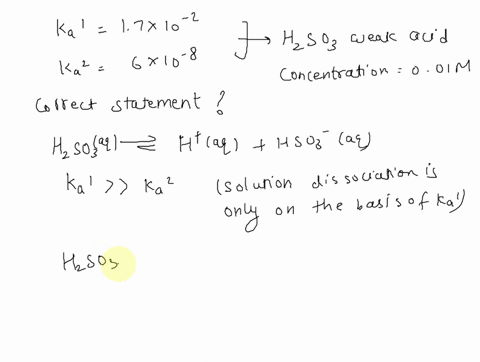 Ka¹ = 1.7×10⁻²
Ka² = 6×10⁻⁸
→ H₂SO₃ weak acid
Concentration = 0.01M
Correct statement ?
H₂SO₃(aq) ⇌ H⁺(aq) + HSO₃⁻(aq)
Ka¹ >> Ka² (solution dissociation is
only on the basis of Ka¹)
H₂SO₃